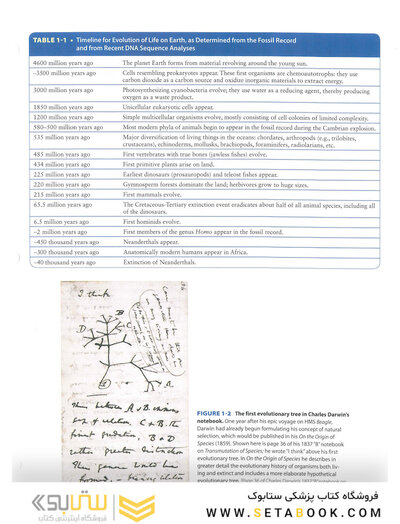 TABLE 1-1 • Timeline for Evolution of Life on Earth, as Determined from the Fossil Record
and from Recent DNA Sequence Analyses
4600 million years ago The planet Earth forms from material revolving around the young sun.
~3500 million years ago Cells resembling prokaryotes appear. These first organisms are chemoautotrophs: they use
carbon dioxide as a carbon source and oxidize inorganic materials to extract energy.
3000 million years ago Photosynthesizing cyanobacteria evolve; they use water as a reducing agent, thereby producing
oxygen as a waste product.
1850 million years ago Unicellular eukaryotic cells appear.
1200 million years ago Simple multicellular organisms evolve, mostly consisting of cell colonies of limited complexity.
580–500 million years ago Most modern phyla of animals begin to appear in the fossil record during the Cambrian explosion.
535 million years ago Major diversification of living things in the oceans: chordates, arthropods (e.g., trilobites,
crustaceans), echinoderms, mollusks, brachiopods, foraminifers, radiolarians, etc.
485 million years ago First vertebrates with true bones (jawless fishes) evolve.
434 million years ago First primitive plants arise on land.
225 million years ago Earliest dinosaurs (prosauropods) and teleost fishes appear.
220 million years ago Gymnosperm forests dominate the land; herbivores grow to huge sizes.
215 million years ago First mammals evolve.
65.5 million years ago The Cretaceous-Tertiary extinction event eradicates about half of all animal species, including all
of the dinosaurs.
6.5 million years ago First hominids evolve.
~2 million years ago First members of the genus Homo appear in the fossil record.
~450 thousand years ago Neanderthals appear.
~300 thousand years ago Anatomically modern humans appear in Africa.
~40 thousand years ago Extinction of Neanderthals.
I think
Then between A & B. immense
gap of relation. C & B. the
finest gradation, B & D
rather greater distinction
Thus genera would be
formed. —
FIGURE 1-2 The first evolutionary tree in Charles Darwin's
notebook. One year after his epic voyage on HMS Beagle,
Darwin had already begun formulating his concept of natural
selection, which would be published in his On the Origin of
Species (1859). Shown here is page 36 of his 1837 "B" notebook
on Transmutation of Species; he wrote "I think" above his first
evolutionary tree. In On the Origin of Species he describes in
greater detail the evolutionary history of organisms both liv-
ing and extinct and includes a more elaborate hypothetical
evolutionary tree.
ستابوک
فروشگاه اینترنتی کتاب
فروشگاه کتاب پزشکی ستابوک
WWW.SETABOOK.COM